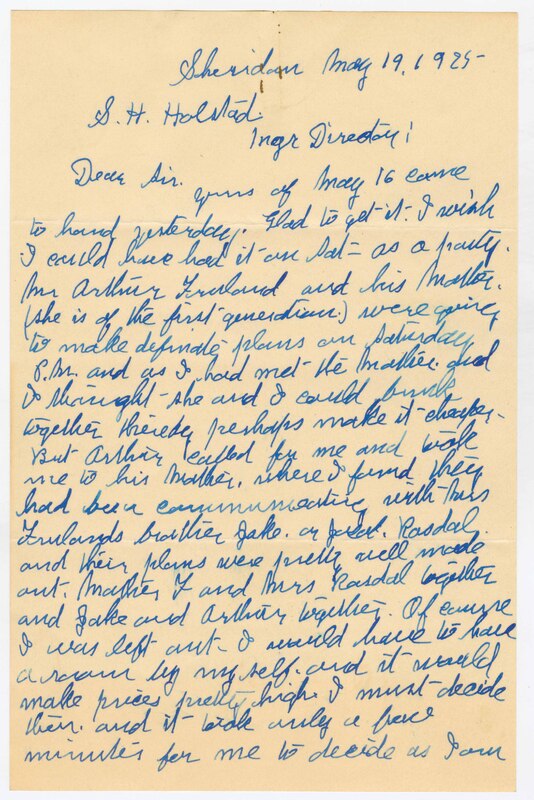 Sheridan May 19, 1925-
S. H. Holstad.
Mngr Directory;
Dear Sir.
yours of May 16 came
to hand yesterday. Glad to get it. I wish
I could have had it on Sat- as a party.
Mr Arthur Fruland and his Mother.
(she is of the first generation.) were going
to make definate plans on Saturday
P.M. and as I had met the Mother. and
I thought she and I could bunk
together thereby perhaps make it cheaper-
But Arthur called for me and took
me to his Mother, where I found they
had been communicating with Mrs
Frulands brother Jake. or Rasdal.
and their plans were pretty well made
out. Mother F and Mrs Rasdal together
and Jake and Arthur together. Of course
I was left out- I would have to have
a room by my self. and it would
make prices pretty high. I must decide
then. and it took only a few
minutes for me to decide as I am